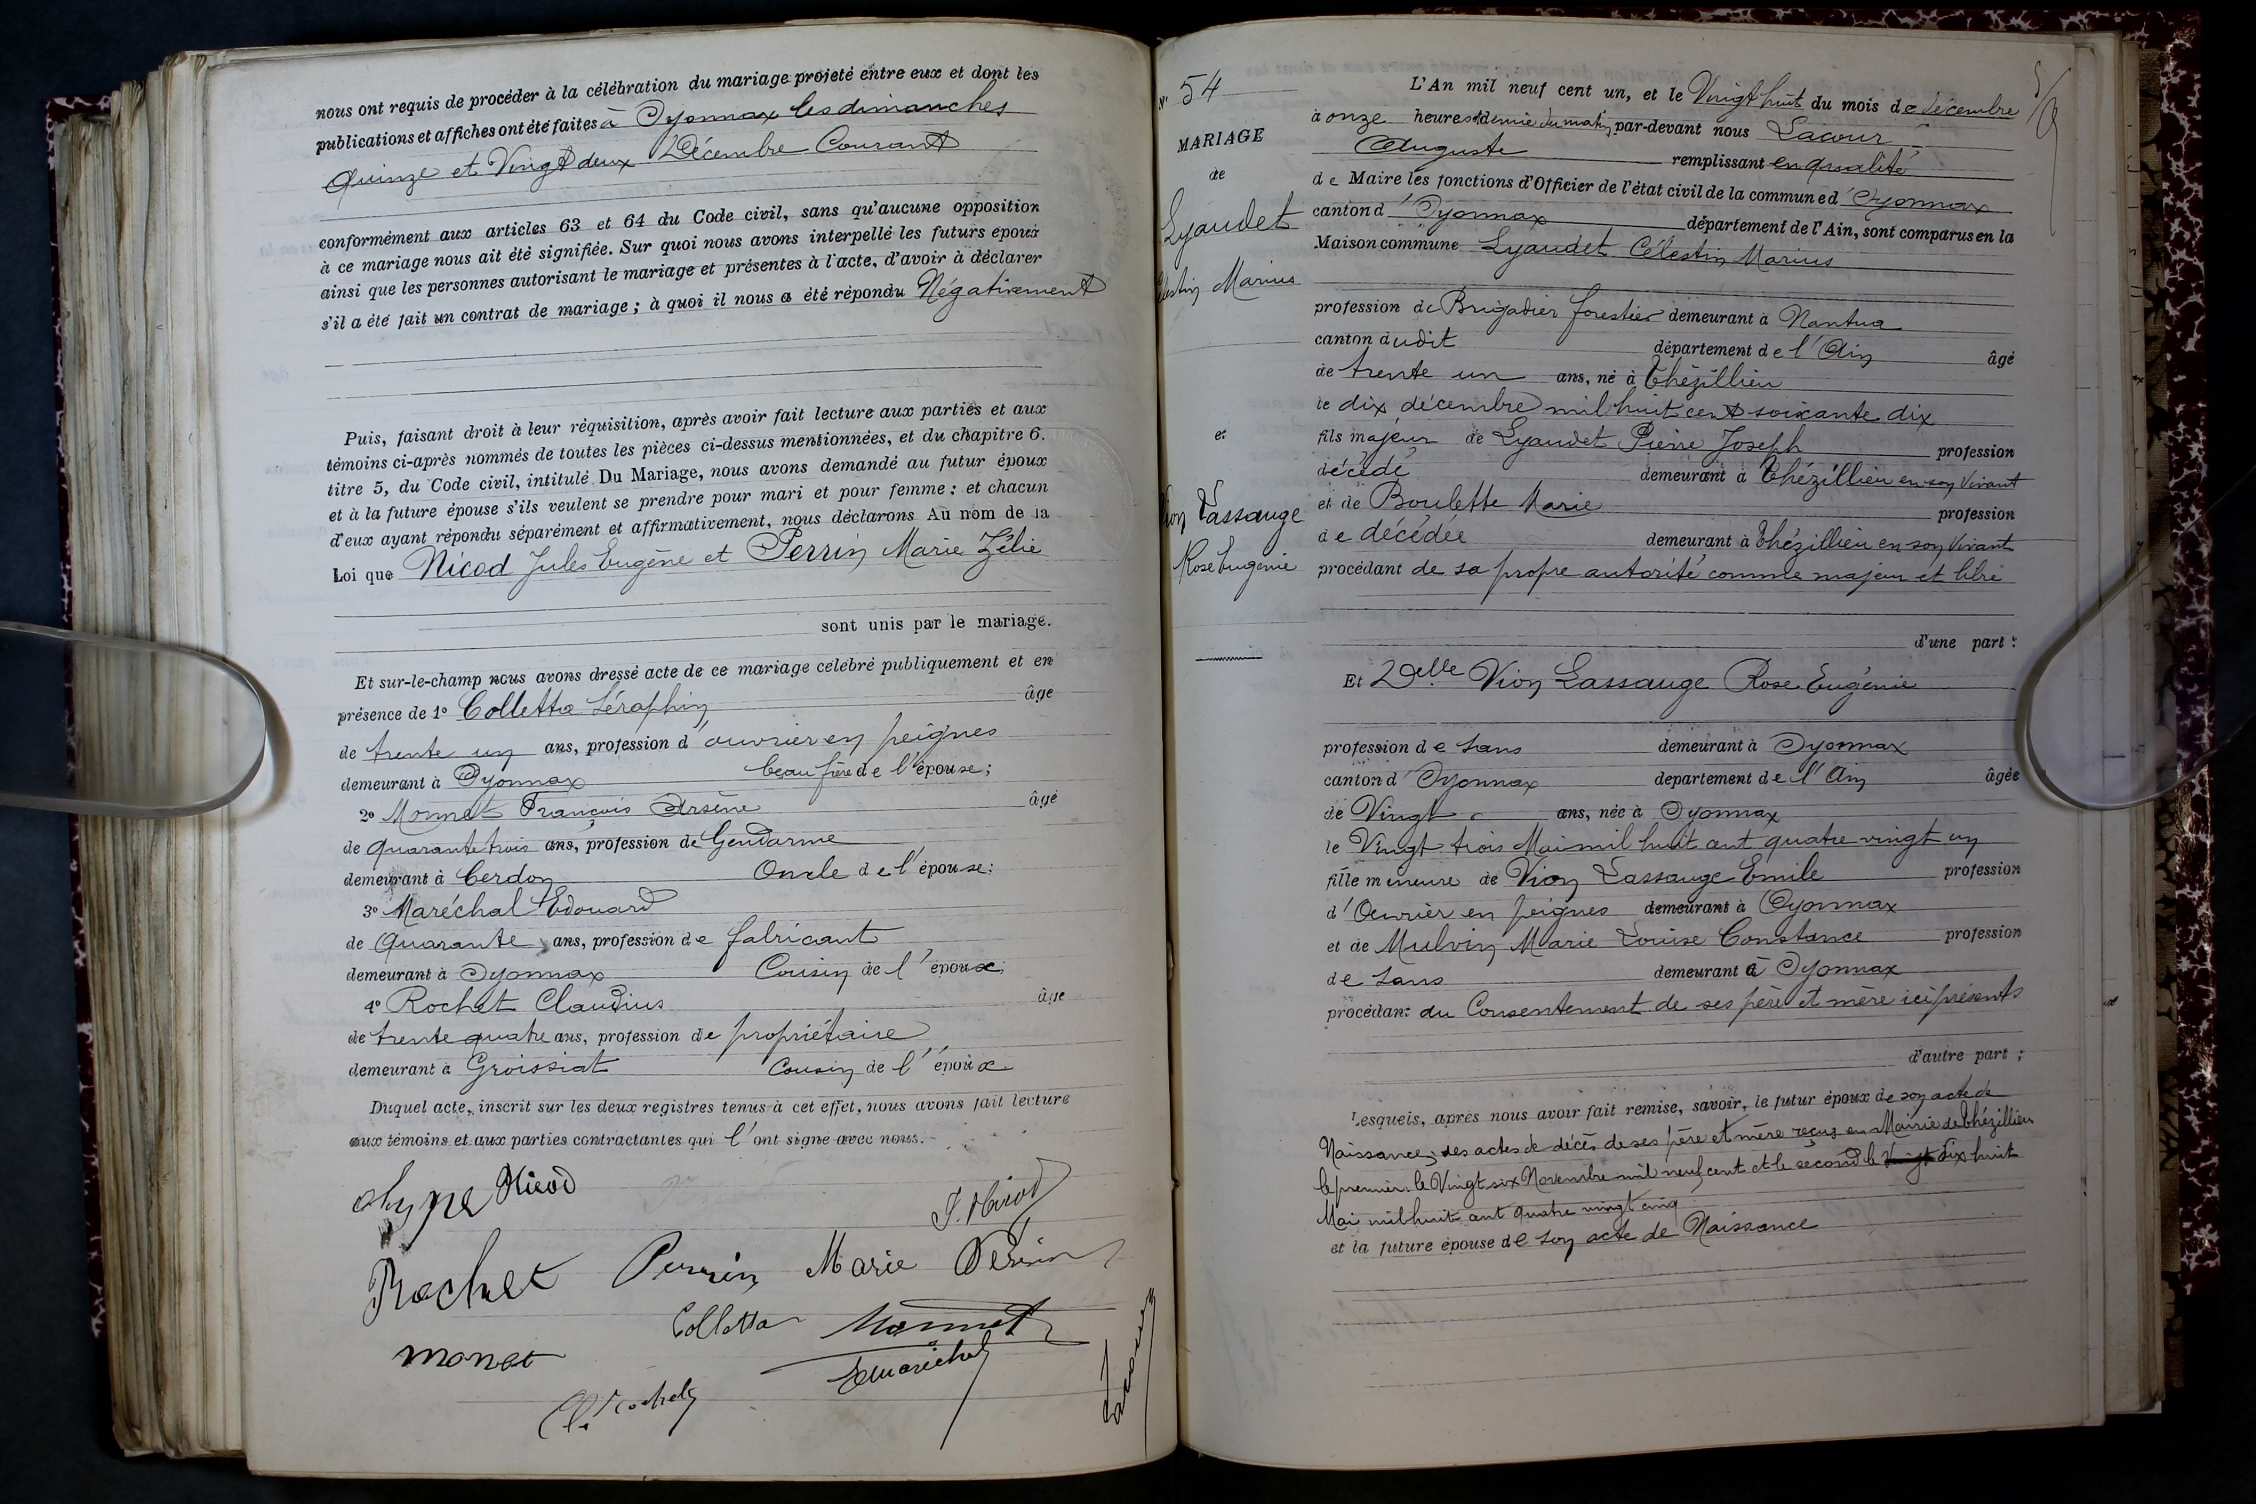 nous ont requis de procéder à la célébration du mariage projeté entre eux et dont les
publications et affiches ont été faites à Oyonnax les dimanches
Quinze et Vingt deux Décembre Courant
conformément aux articles 63 et 64 du Code civil, sans qu'aucune opposition
à ce mariage nous ait été signifiée. Sur quoi nous avons interpellé les futurs époux
ainsi que les personnes autorisant le mariage et présentes à l'acte, d'avoir à déclarer
s'il a été fait un contrat de mariage ; à quoi il nous a été répondu Négativement
Puis, faisant droit à leur réquisition, après avoir fait lecture aux parties et aux
témoins ci-après nommés de toutes les pièces ci-dessus mentionnées, et du chapitre 6.
titre 5, du Code civil, intitulé Du Mariage, nous avons demandé au futur époux
et à la future épouse s'ils veulent se prendre pour mari et pour femme : et chacun
d'eux ayant répondu séparément et affirmativement, nous déclarons Au nom de la
Loi que Nicod Jules Eugène et Perrin Marie Zélie
sont unis par le mariage.
Et sur-le-champ nous avons dressé acte de ce mariage célébré publiquement et en
présence de 1° Colletta Séraphin âgé
de trente un ans, profession d'ouvrier en peignes
demeurant à Oyonnax beau frère de l'épouse ;
2° Monnet François Arsène âgé
de quarante trois ans, profession de Gendarme
demeurant à Cerdon Oncle de l'épouse ;
3° Maréchal Edouard
de Quarante ans, profession de fabricant
demeurant à Oyonnax Cousin de l'époux ;
4° Rochet Claudius âgé
de trente quatre ans, profession de propriétaire
demeurant à Groissiat Cousin de l'époux
Duquel acte, inscrit sur les deux registres tenus à cet effet, nous avons fait lecture
aux témoins et aux parties contractantes qui l'ont signé avec nous.
Nicod
J. Nicod
Rochet Perrin Marie Perrin
Colletta Monnet
Monet
E Maréchal
Cl. Rochet
Lacour
N° 54
MARIAGE
de
Lyaudet
Célestin Marius
et
Vion Lassauge
Rose Eugénie
L'An mil neuf cent un, et le Vingt huit du mois de décembre
à onze heures et demie du matin par-devant nous Lacour
Auguste remplissant en qualité
de Maire les fonctions d'Officier de l'état civil de la commune d'Oyonnax
canton d'Oyonnax département de l'Ain, sont comparus en la
Maison commune Lyaudet Célestin Marius
profession de Brigadier forestier demeurant à Nantua
canton dudit département de l'Ain âgé
de trente un ans, né à Thézillieu
le dix décembre mil huit cent soixante dix
fils majeur de Lyaudet Pierre Joseph profession
décédé demeurant à Thézillieu en son vivant
et de Boulette Marie profession
de décédée demeurant à Thézillieu en son vivant
procédant de sa propre autorité comme majeur et libre
d'une part :
Et Delle Vion Lassauge Rose Eugénie
profession de sans demeurant à Oyonnax
canton d'Oyonnax département de l'Ain âgée
de Vingt ans, née à Oyonnax
le Vingt trois Mai mil huit cent quatre vingt un
fille mineure de Vion Lassauge Emile profession
d'Ouvrier en peignes demeurant à Oyonnax
et de Mulvin Marie Louise Constance profession
de sans demeurant à Oyonnax
procédant du Consentement de ses père et mère ici présents
d'autre part ;
Lesquels, après nous avoir fait remise, savoir, le futur époux de son acte de
Naissance, des actes de décès de ses père et mère reçus en Mairie de Thézillieu
le premier le Vingt six Novembre mil neuf cent et le second le Vingt dix huit
Mai mil huit cent quatre vingt cinq
et la future épouse de son acte de Naissance